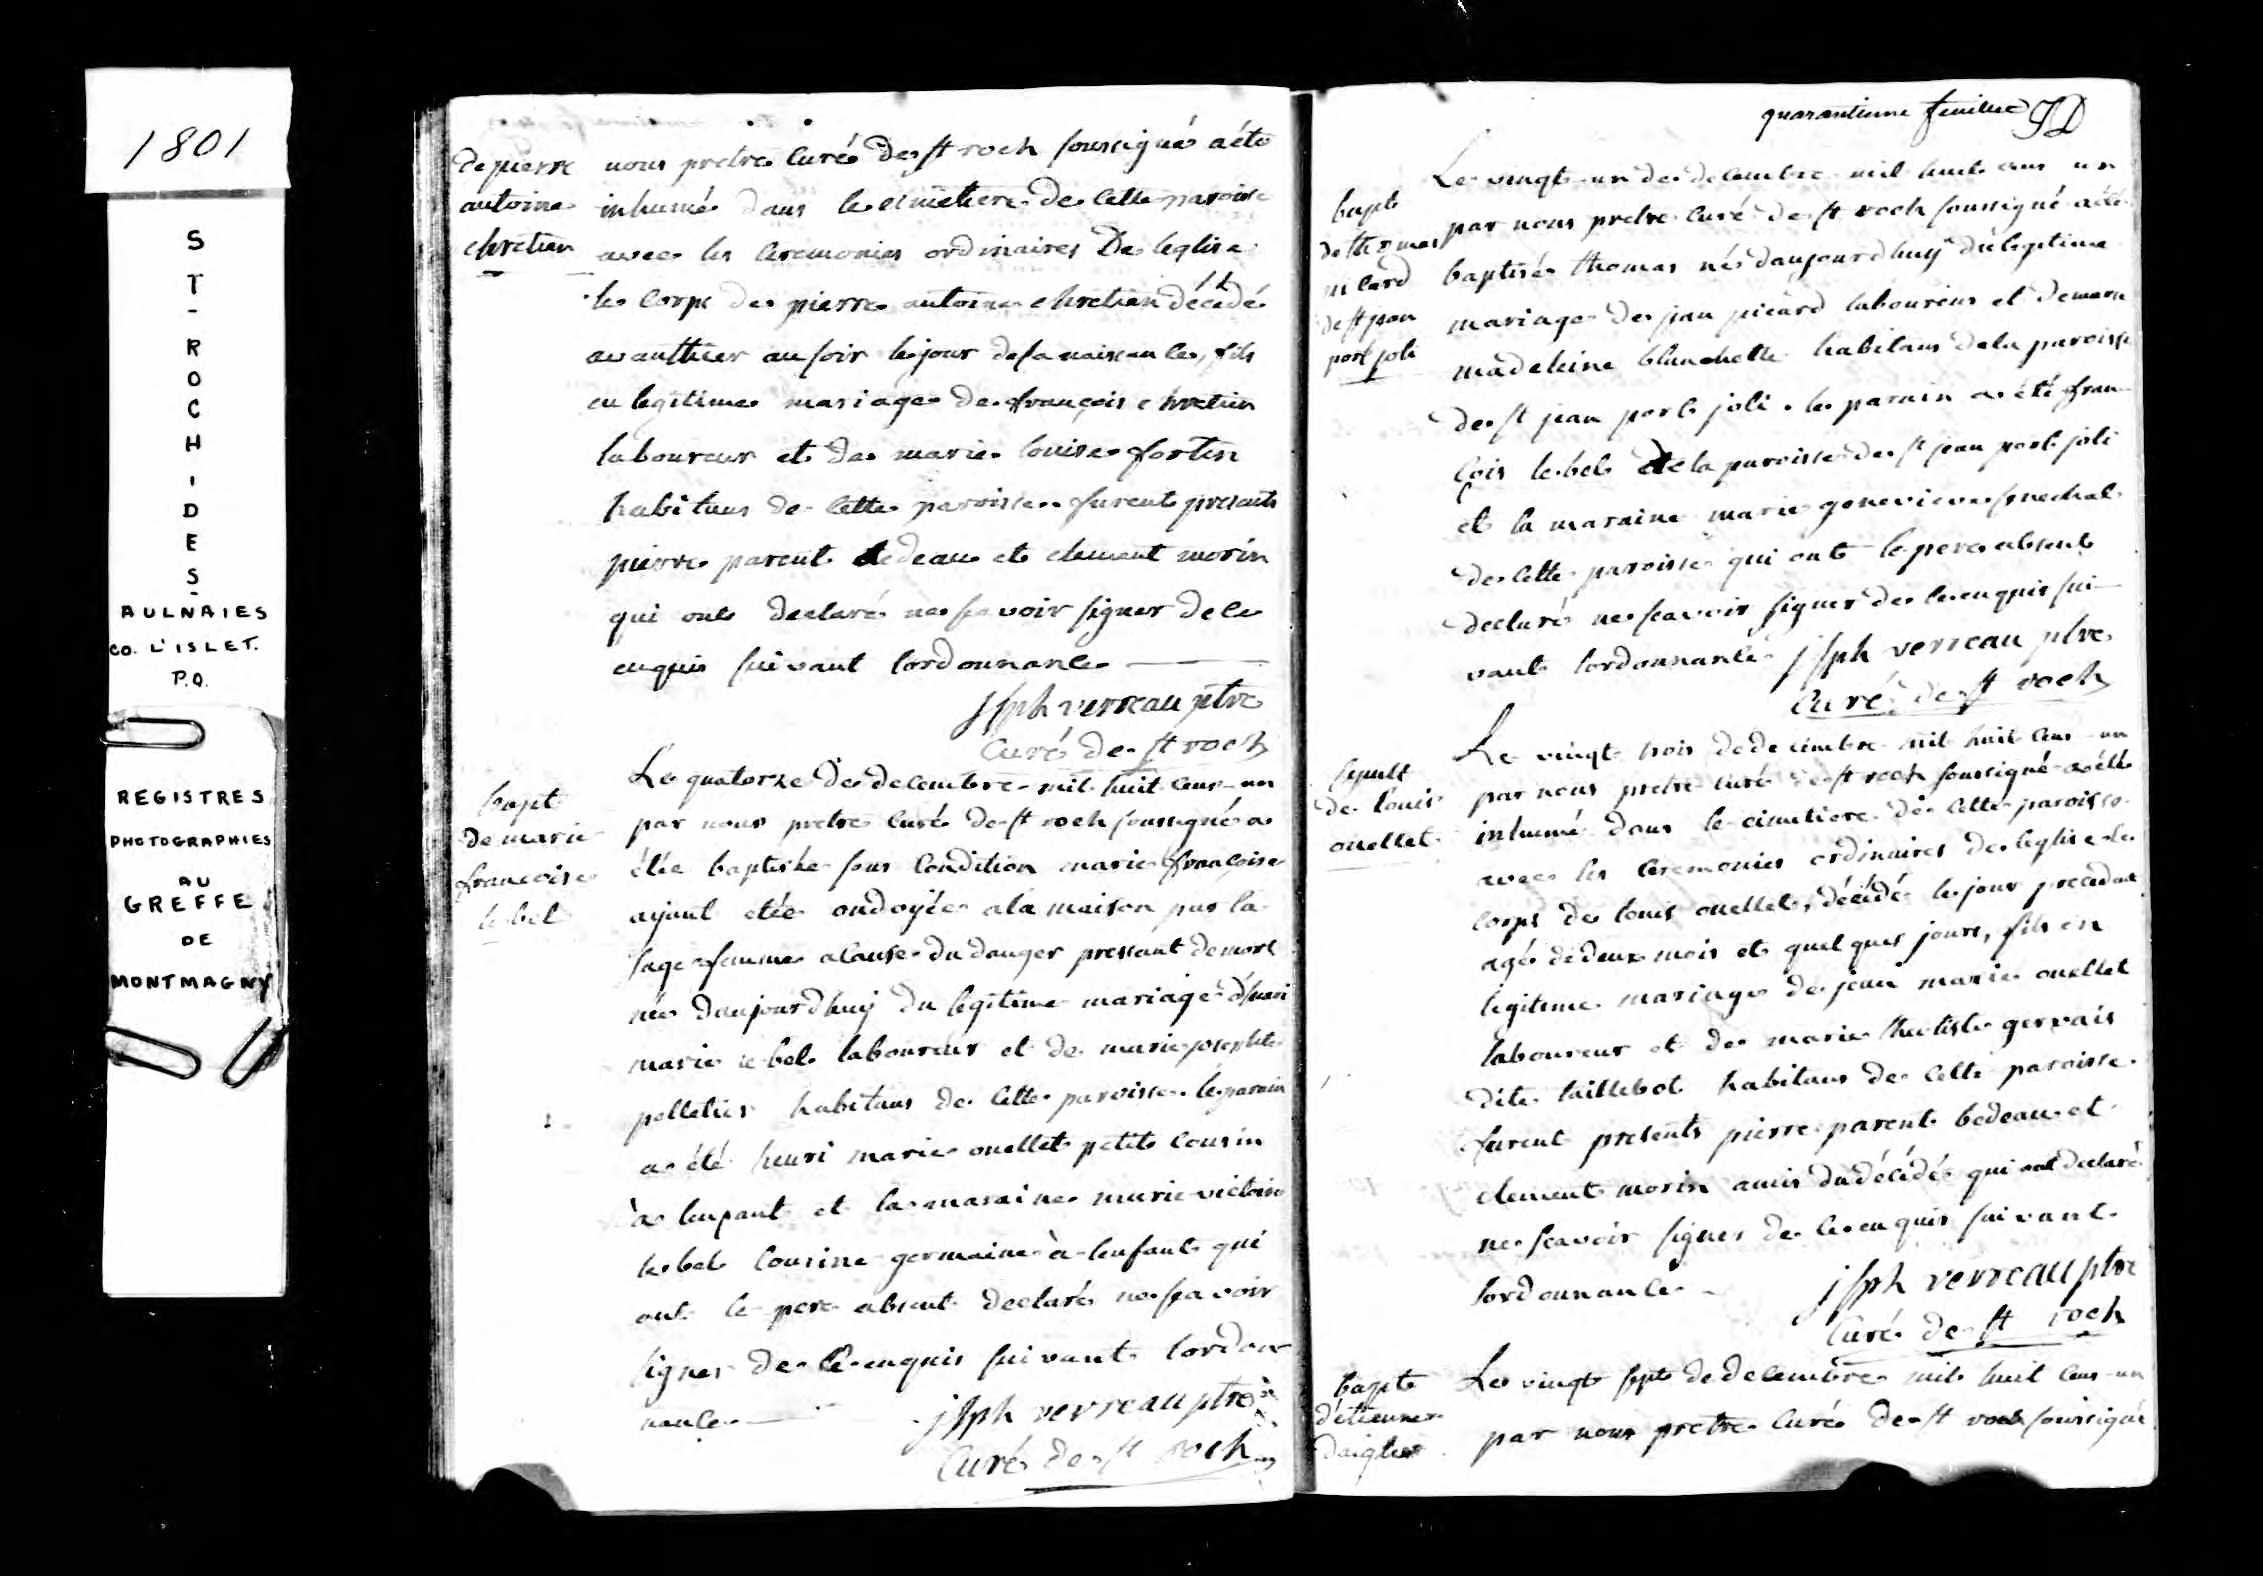 1801
ST-ROCH-DES-
AULNAIES
CO. L'ISLET.
P.Q.
REGISTRES
PHOTOGRAPHIES
AU
GREFFE
DE
MONTMAGNY
de pierre
antoine
chretien
nous pretre curé de st roch soussigné a été
inhumé dans le cimetiere de cette paroisse
avec les ceremonies ordinaires De leglise
le corps de pierre antoine chretien décédé
avanthier au soir le jour de sa naissance, fils
en legitime mariage de françois chretien
laboureur et de marie louise fortin
habitans de cette paroisse. furent presents
pierre parent bedeau et clement morin
qui ont declaré ne scavoir signer de ce
enquis suivant lordonnance
jsph verreau ptre
curé de st roch
bapt
de marie
francoise
lebel
Le quatorze de decembre mil huit cens un
par nous pretre curé de st roch soussigné a
étée baptisée sous condition marie françoise
ayant etée ondoyée a la maison par la
sage femme a cause du danger pressant de mort
née daujourdhuy du legitime mariage d'henri
marie lebel laboureur et de marie josephte
pelletier habitans de cette paroisse. le parain
a été henri marie ouellet petit cousin
à lenfant et la maraine marie victoire
lebel cousine germaine à lenfant qui
ont le pere absent declaré ne scavoir
signer de ce enquis suivant lordon
nance
jsph verreau ptre
curé de st roch
quarantieme feuillet JD
bapt
de thomas
picard
de st jean
port joli
Le vingt un de decembre mil huit cens un
par nous pretre curé de st roch soussigné a été
baptisé thomas né daujourdhuy du legitime
mariage de jean picard laboureur et de marie
madeleine blanchette habitans de la paroisse
de st jean port joli. le parain a été fran
cois lebel de la paroisse de st jean port joli
et la maraine marie genevieve senechal
de cette paroisse qui ont le pere absent
declaré ne scavoir signer de ce enquis sui
vant lordonnance jsph verreau ptre
curé de st roch
sepult
de louis
ouellet
Le vingt trois de decembre mil huit cens un
par nous pretre curé de st roch soussigné a été
inhumé dans le cimetiere de cette paroisse
avec les ceremonies ordinaires de leglise le
corps de louis ouellet, décédé le jour precedent
agé de deux mois et quelques jours, fils en
legitime mariage de jean marie ouellet
laboureur et de marie thectiste gervais
dite taillebot habitans de cette paroisse.
furent presents pierre parent bedeau et
clement morin amis du décédé qui ont declaré
ne scavoir signer de ce enquis suivant
lordonnance
jsph verreau ptre
curé de st roch
bapte
détienne
daigle
Le vingt sept de decembre mil huit cens un
par nous pretre curé de st roch soussigné